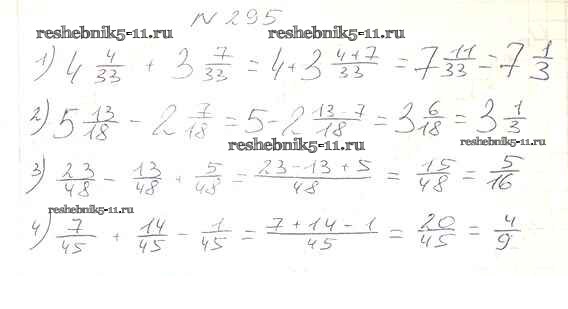 N 295
reshebnik5-11.ru reshebnik5-11.ru
1) 4 4/33 + 3 7/33 = 4+3 (4+7)/33 = 7 11/33 = 7 1/3
2) 5 13/18 - 2 7/18 = 5-2 (13-7)/18 = 3 6/18 = 3 1/3
reshebnik5-11.ru reshebnik5-11.ru
3) 23/48 - 13/48 + 5/48 = (23-13+5)/48 = 15/48 = 5/16
reshebnik5-11.ru
4) 7/45 + 14/45 - 1/45 = (7+14-1)/45 = 20/45 = 4/9